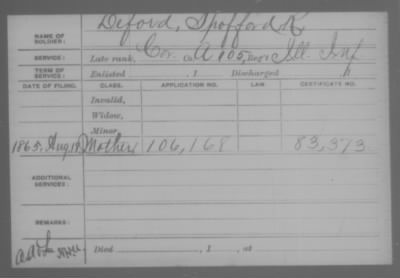 NAME OF SOLDIER: Deford, Spofford K.
SERVICE: Late rank, Cor. Co. A 105, Reg't Ill. Inf
TERM OF SERVICE: Enlisted , 1 Discharged , 1
DATE OF FILING. CLASS. APPLICATION NO. LAW. CERTIFICATE NO.
Invalid,
Widow,
Minor,
1865, Aug 19 Mother, 106,168 83,373.
ADDITIONAL SERVICES:
REMARKS:
Died , 1 , at